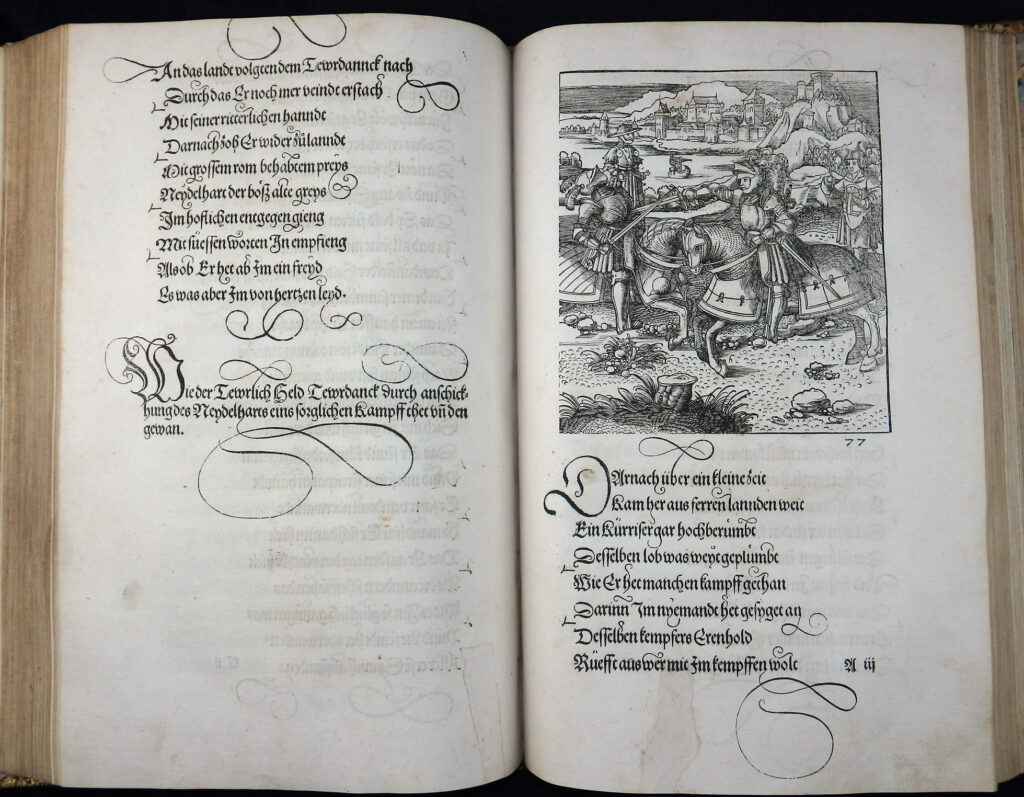 An das landt volgten dem Tewrdannck nach
Durch das Er noch mer veindt erstach
Mit seiner ritterlichen hanndt
Darnach zoh Er wider zů lanndt
Mit grossem rom behabtem preys
Neydelhart der boß alte greys
Im hoflichen entgegen gieng
Mit süessen worten In empfieng
Als ob Er het ab Im ein freyd
Es was aber Im von hertzen leyd.
Wie der Tewrlich Held Tewrdanck durch anschick-
hung des Neydelharts eins sorglichen Kampff thet vnd den
gewan.
77
DArnach über ein kleine zeit
Kam her aus ferren lannden weit
Ein Kürriser gar hochberümbt
Desselben lob was weyt geplümbt
Wie Er het manchen kampff gethan
Darinn Im nyemandt het gesyget an
Desselben kempfers Erenhold
Rüefft aus wer mit Im kempffen wolt
A iij